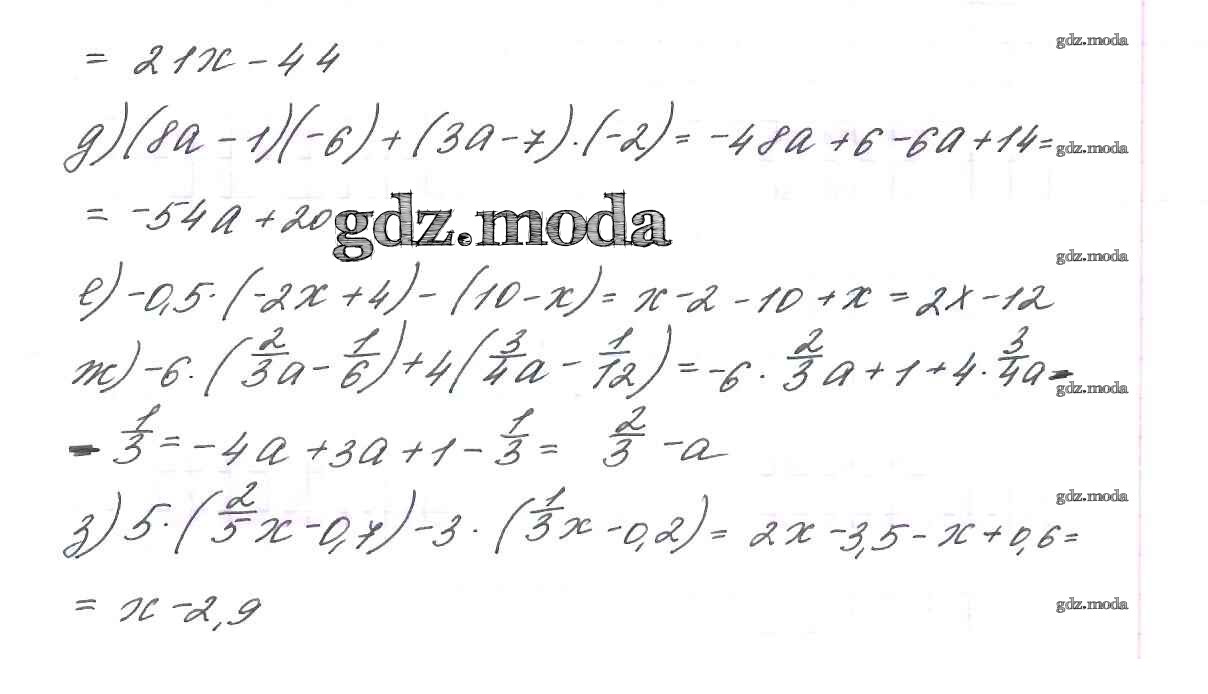 = 21x - 44
gdz.moda
д) (8a - 1)(-6) + (3a - 7) · (-2) = -48a + 6 - 6a + 14 =
gdz.moda
= -54a + 20
gdz.moda
gdz.moda
е) -0,5 · (-2x + 4) - (10 - x) = x - 2 - 10 + x = 2x - 12
ж) -6 · (2/3 a - 1/6) + 4(3/4 a - 1/12) = -6 · 2/3 a + 1 + 4 · 3/4 a -
gdz.moda
- 1/3 = -4a + 3a + 1 - 1/3 = 2/3 - a
gdz.moda
з) 5 · (2/5 x - 0,7) - 3 · (1/3 x - 0,2) = 2x - 3,5 - x + 0,6 =
= x - 2,9
gdz.moda